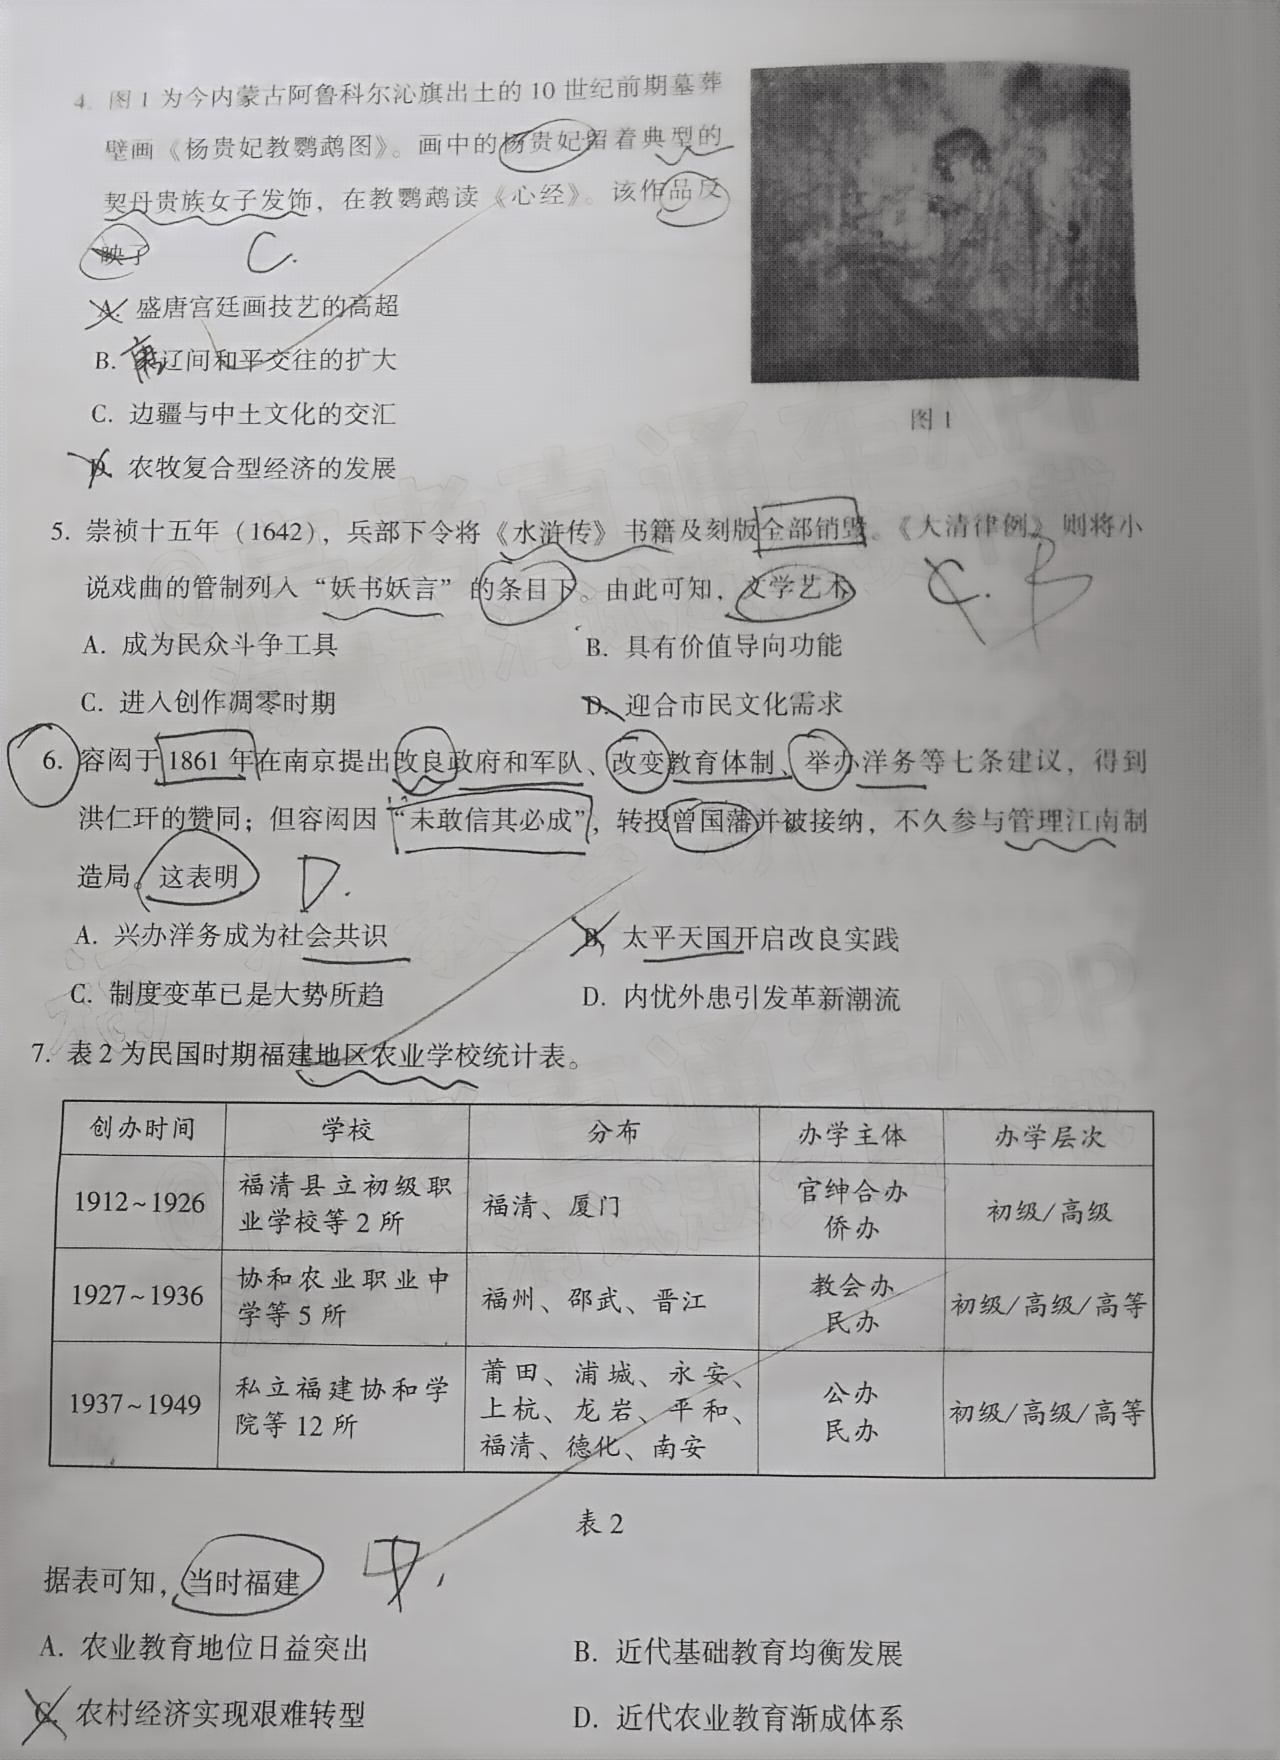 4. 图1为今内蒙古阿鲁科尔沁旗出土的10世纪前期墓葬
壁画《杨贵妃教鹦鹉图》。画中的杨贵妃留着典型的
契丹贵族女子发饰，在教鹦鹉读《心经》。该作品反
映了
C.
A. 盛唐宫廷画技艺的高超
B. 辽间和平交往的扩大
C. 边疆与中土文化的交汇
D. 农牧复合型经济的发展
图1
5. 崇祯十五年（1642），兵部下令将《水浒传》书籍及刻版全部销毁。《大清律例》则将小
说戏曲的管制列入“妖书妖言”的条目下。由此可知，文学艺术
C. B
A. 成为民众斗争工具
B. 具有价值导向功能
C. 进入创作凋零时期
D. 迎合市民文化需求
6. 容闳于1861年在南京提出改良政府和军队、改变教育体制、举办洋务等七条建议，得到
洪仁玕的赞同；但容闳因“未敢信其必成”，转投曾国藩并被接纳，不久参与管理江南制
造局。这表明
D.
A. 兴办洋务成为社会共识
B. 太平天国开启改良实践
C. 制度变革已是大势所趋
D. 内忧外患引发革新潮流
7. 表2为民国时期福建地区农业学校统计表。
创办时间 学校 分布 办学主体 办学层次
1912~1926 福清县立初级职业学校等2所 福清、厦门 官绅合办 侨办 初级/高级
1927~1936 协和农业职业中学等5所 福州、邵武、晋江 教会办 民办 初级/高级/高等
1937~1949 私立福建协和学院等12所 莆田、浦城、永安、上杭、龙岩、平和、福清、德化、南安 公办 民办 初级/高级/高等
表2
据表可知，当时福建
A. 农业教育地位日益突出
B. 近代基础教育均衡发展
C. 农村经济实现艰难转型
D. 近代农业教育渐成体系